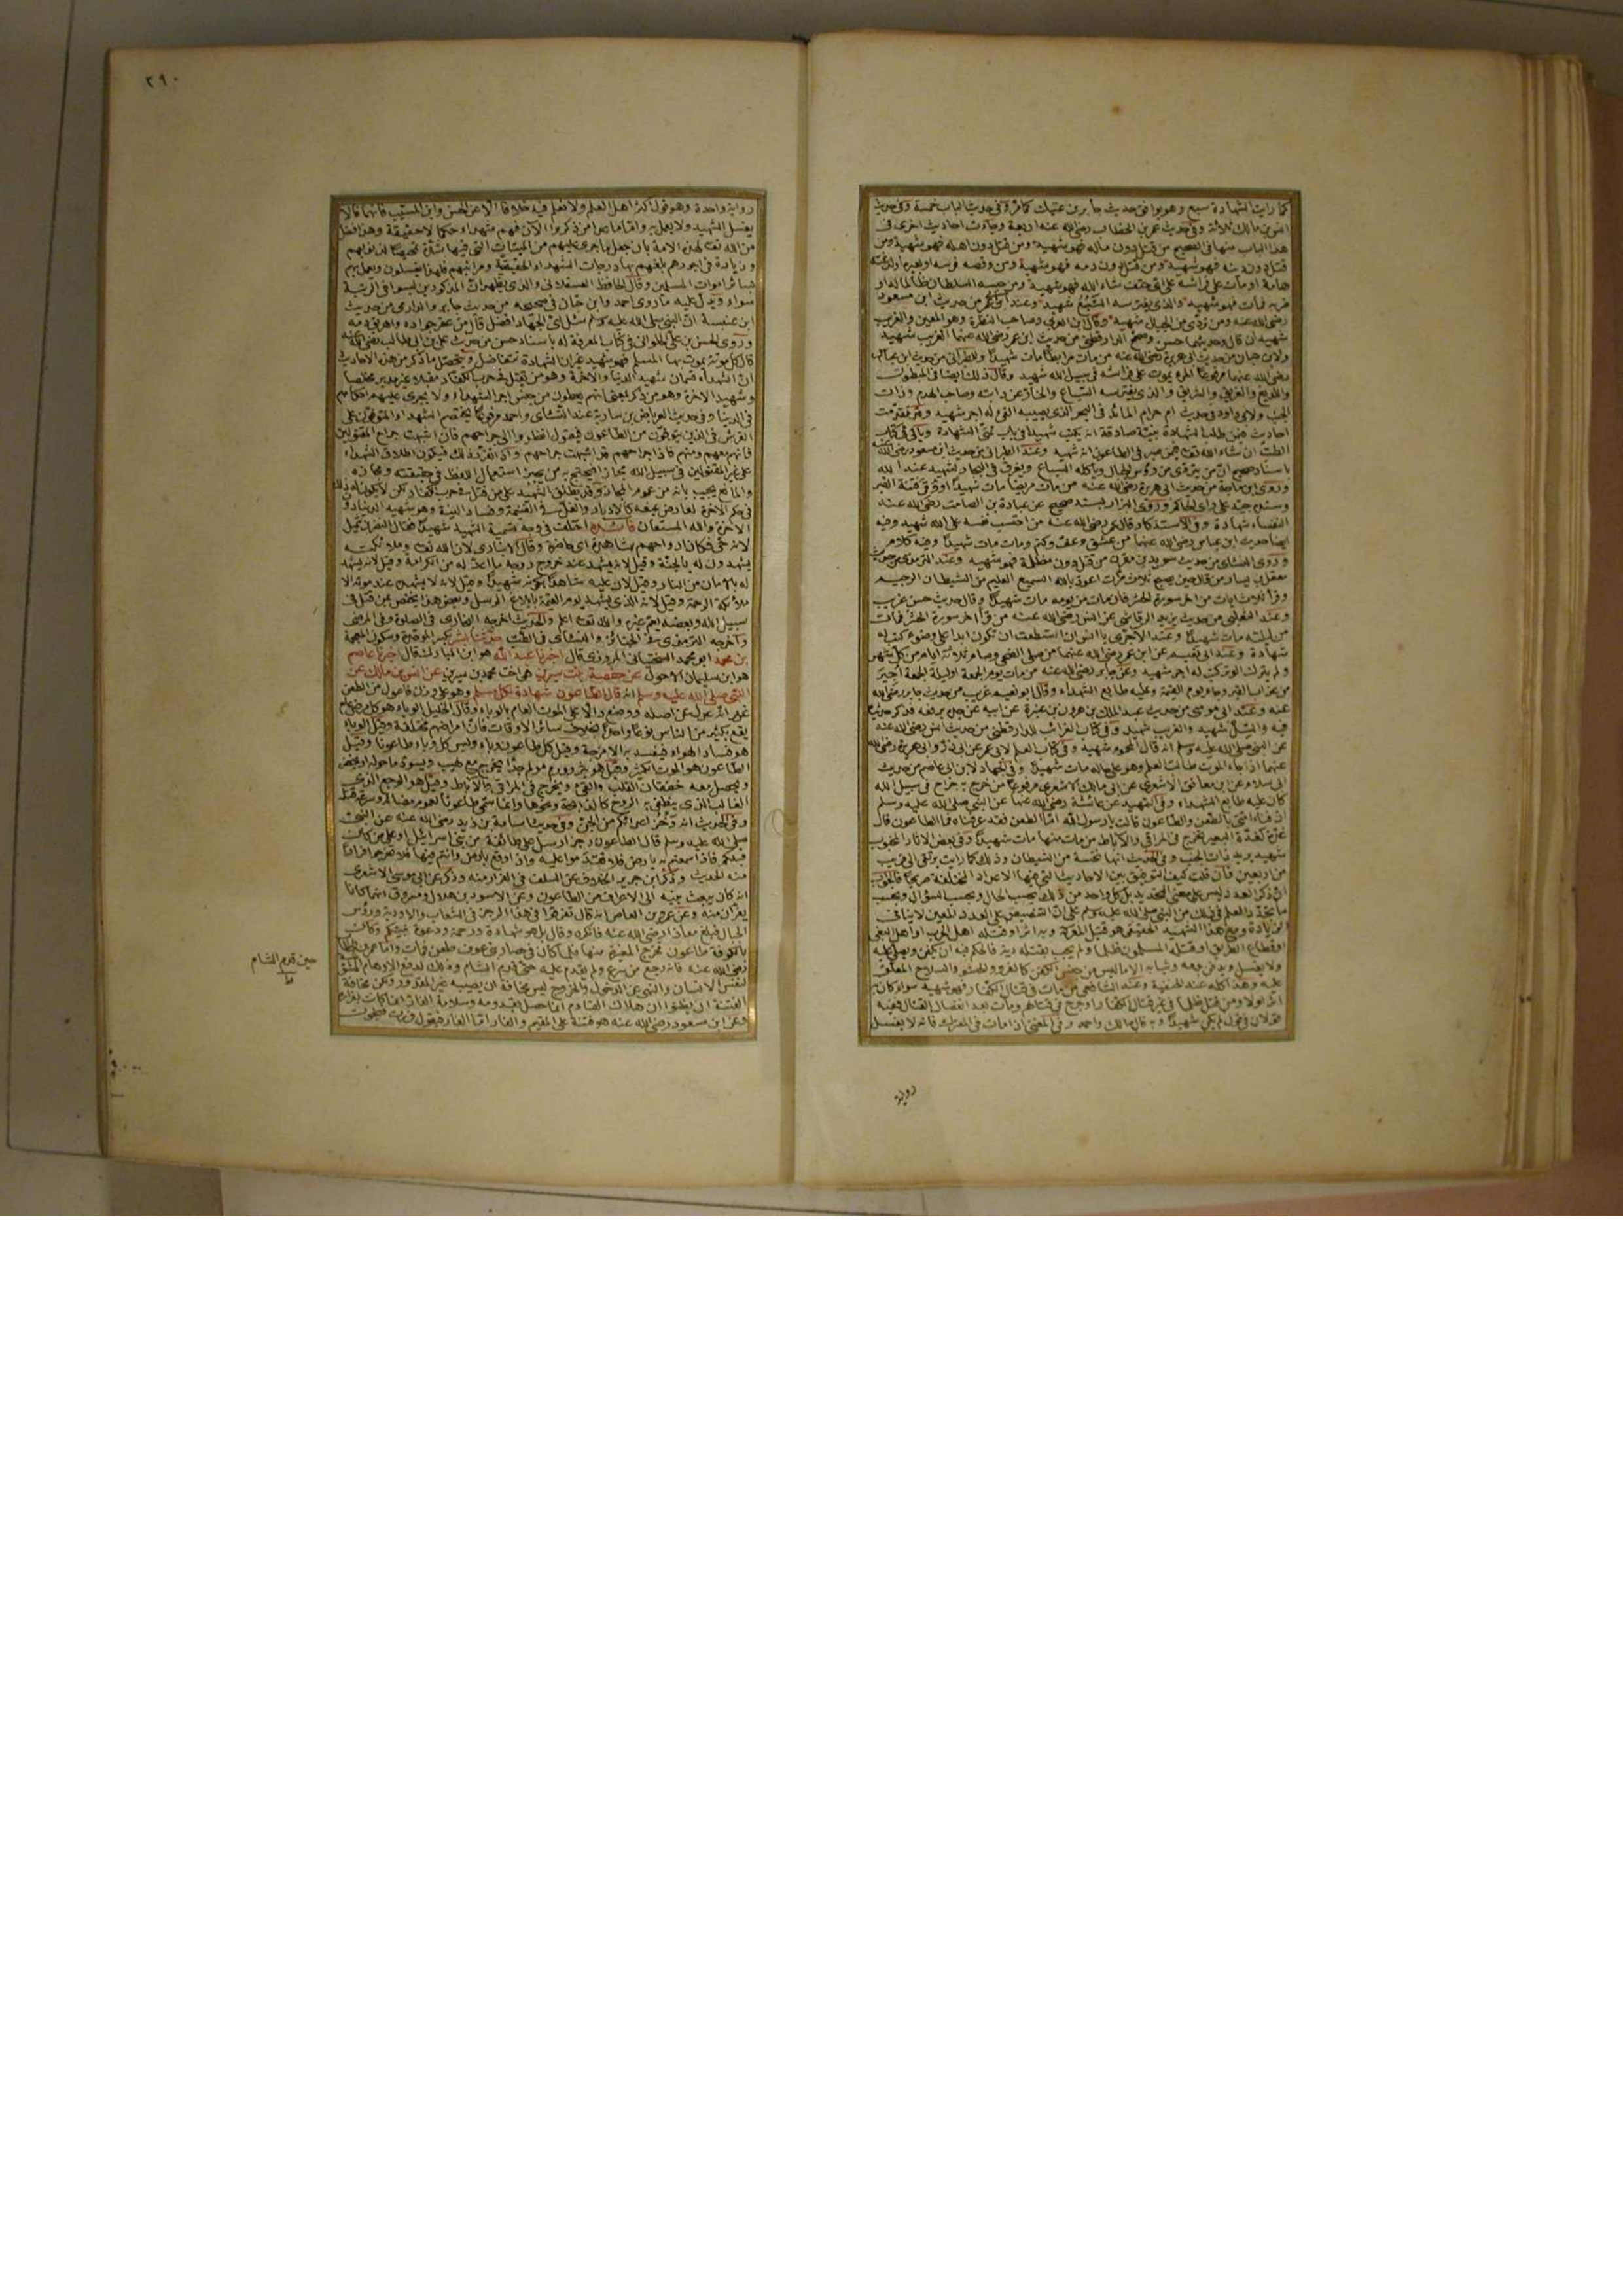 كما رايت الشهادة سبع وهو يوافق حديث جابر بن عتيك كما مر وفى حديث الباب خمسة وفى حديث
انس بن مالك ثلاثة وفى حديث عمر بن الخطاب رضى الله عنه اربعة وجاءت احاديث اخرى فى
هذا الباب منها فى الصحيح من قتل دون ماله فهو شهيد ومن قتل دون اهله فهو شهيد ومن
قتل دون دينه فهو شهيد ومن قتل دون دمه فهو شهيد ومن وقصه فرسه او بعيره او لدغته
هامة او مات على فراشه على اى حتف شاء الله فهو شهيد ومن حبسه السلطان ظالما له او
ضربه فمات فهو شهيد والذى يفترسه السبع شهيد وعند الحاكم من حديث ابن مسعود
رضى الله عنه ومن تردى من الجبال شهيد وقال ابن العربى وصاحب النظرة وهو المعين والغريب
شهيدان قال وحديثهما حسن وصحح الدارقطنى من حديث ابن عمر رضى الله عنهما الغريب شهيد
من حديث ابى هريرة رضى الله عنه من مات مرابطا مات شهيدا وللطبرانى من حديث ابن عباس
رضى الله عنهما مرفوعا المرء يموت على فراشه فى سبيل الله شهيد وقال ذلك ايضا فى المبطون
واللديغ والغريق والشريق والذى يفترسه السباع والخار عن دابته وصاحب الهدم وذات
الجنب ولابى داود فى حديث ام حرام المائد فى البحر الذى يصيبه القىء له اجر شهيد
احاديث فيمن طلب الشهادة بنية صادقة انه يكتب شهيدا فى باب تمنى الشهادة وياتى فى كتاب
الطب ان شاء الله تعالى فيمن صبر فى الطاعون انه شهيد وعند الطبرانى من حديث ابن مسعود رضى الله عنه
باسناد صحيح ان من يتردى من رؤس الجبال وياكله السباع ويغرق فى البحار لشهيد عند الله
وروى ابن ماجة من حديث ابى هريرة رضى الله عنه من مات مريضا مات شهيدا او وقى فتنة القبر
وسنده جيد على راى الحاكم وروى البزار بسند صحيح عن عبادة بن الصامت رضى الله عنه
النفساء شهادة وفى الاستذكار قال عمر رضى الله عنه من احتسب نفسه على الله شهيد وفيه
ايضا حديث ابن عباس رضى الله عنهما من عشق وعف وكتم ومات مات شهيدا وفيه كلام
وروى النسائى من حديث سويد بن مقرن من قتل دون مظلمة فهو شهيد وعند الترمذى من حديث
معقل بن يسار من قال حين يصبح ثلاث مرات اعوذ بالله السميع العليم من الشيطان الرجيم
وقرأ ثلاث ايات من اخر سورة الحشر فان مات من يومه مات شهيدا وقال حديث حسن غريب
وعند الثعلبى من حديث يزيد الرقاشى عن انس رضى الله عنه من قرأ اخر سورة الحشر فمات
من ليلته مات شهيدا وعند الآجرى يا انس ان استطعت ان تكون ابدا على وضوء
شهادة وعند ابى نعيم عن ابن عمر رضى الله عنهما من صلى الضحى وصام ثلاثة ايام من كل شهر
ولم يترك الوتر كتب له اجر شهيد وعن جابر رضى الله عنه من مات يوم الجمعة او ليلة الجمعة اجير
من عذاب القبر وجاء يوم القيمة وعليه طابع الشهداء وقال ابو نعيم غريب من حديث جابر رضى الله
عنه وعند ابى موسى من حديث عبد الملك بن هرون بن عنترة عن ابيه عن جده يرفعه فذكر حديثا
فيه والسل شهيد والغريب شهيد وفى كتاب الغرائب للدارقطنى من حديث انس رضى الله عنه
عن النبى صلى الله عليه وسلم انه قال المحموم شهيد وفى كتاب العلم لابى عمر عن ابى ذر وابى هريرة رضى الله
عنهما اذا جاء الموت طالب العلم وهو على حاله مات شهيدا وفى الجهاد لابن ابى عاصم من حديث
ابى سلام عن ابن معانق الاشعرى عن ابى مالك الاشعرى مرفوعا من خرج به خراج فى سبيل الله
كان عليه طابع الشهداء وفى التمهيد عن عائشة رضى الله عنها عن النبى صلى الله عليه وسلم
ان فناء امتى بالطعن والطاعون قالت يا رسول الله اما الطعن فقد عرفناه فما الطاعون قال
غدة كغدة البعير تخرج فى المراق والآباط من مات منها مات شهيدا وفى بعض الاثار المجنوب
شهيد يريد ذات الجنب وفى الحديث انها نخسة من الشيطان وذلك كما رايت يرتقى الى قريب
من اربعين فان قلت كيف التوفيق بين الاحاديث التى فيها الاعداد المختلفة صريحا فالجواب
ان ذكر العدد ليس على معنى التحديد بل كل واحد من ذلك بحسب الحال وبحسب السؤال وبحسب
ما تجدد العلم فى ذلك من النبى صلى الله عليه وسلم على ان التنصيص على العدد المعين لا ينافى
الزيادة ومع هذا الشهيد الحقيقى هو قتيل المعركة وبه اثر او قتله اهل الحرب او اهل البغى
او قطاع الطريق او قتله المسلمون ظلما ولم يجب بقتله دية فالحكم فيه ان يكفن ويصلى عليه
ولا يغسل ويدفن بدمه وثيابه الا ما ليس من جنس الكفن كالفرو والحشو والسلاح المعلق
عليه وهذا كله عند الحنفية وعند الشافعى من مات فى قتال الكفار فهو شهيد سواء كان به
اثر او لا ومن قتل ظلما فى غير قتال الكفار او جرح فى قتالهم ومات بعد انفصال القتال ففيه
قولان فى قول لم يكن شهيدا وبه قال مالك واحمد وفى المغنى اذا مات فى المعترك فانه لا يغسل
رواية
٢٩٠
رواية واحدة وهو قول اكثر اهل العلم ولا نعلم فيه خلافا الا عن الحسن وابن المسيب فانهما قالا
يغسل الشهيد ولا يعمل به واما ما عدا من ذكروا الآن فهم شهداء حكما لا حقيقة وهذا فضل
من الله تعالى لهذه الامة بان جعل ما جرى عليهم من الميتات التى فيها شدة تمحيصا لذنوبهم
وزيادة فى اجورهم بلغهم بها درجات الشهداء الحقيقية ومراتبهم فلهذا يغسلون ويعمل بهم
سائر اموات المسلمين وقال الحافظ العسقلانى والذى يظهر ان المذكورين ليسوا فى الرتبة
سواء ويدل عليه ما روى احمد وابن حبان فى صحيحه من حديث جابر والدارمى من حديث
ان النبى صلى الله عليه وسلم سئل اى الجهاد افضل قال من عقر جواده واهريق دمه
وروى الحسن بن على الحلوانى فى كتاب المعرفة له باسناد حسن من حديث على بن ابى طالب رضى الله عنه
قال كل موتة يموت بها المسلم فهو شهيد غير ان الشهادة تتفاضل ويتحصل مما ذكر من هذه الاحاديث
ان الشهداء قسمان شهيد الدنيا والاخرة وهو من يقتل فى حرب الكفار مقبلا غير مدبر مخلصا
وشهيد الاخرة وهو من ذكر بمعنى انهم يعطون من جنس اجر الشهداء ولا يجرى عليهم احكامهم
فى الدنيا وفى حديث العرباض بن سارية عند النسائى واحمد مرفوعا يختصم الشهداء والمتوفون على
الفرش فى الذين يتوفون من الطاعون فيقول انظروا الى جراحهم فان اشبهت جراح المقتولين
فانهم معهم ومنهم فاذا جراحهم قد اشبهت جراحهم واذا تقرر ذلك فيكون اطلاق الشهداء
على غير المقتولين فى سبيل الله مجازا فيحتج به من يجيز استعمال اللفظ فى حقيقته ومجازه
والمانع يجيب بانه من عموم المجاز وقد يطلق الشهيد على من قتل فى حرب الكفار لكن لا يكون له ذلك
فى حكم الاخرة لعارض يمنعه كالادبار والغلول فى الغنيمة وفساد النية وهو شهيد الدنيا دون
الاخرة والله المستعان فائدة اختلف فى وجه تسمية الشهيد شهيدا فقال النضر بن شميل
لانه حى فكان ارواحهم شاهدة اى حاضرة وقال الانبارى لان الله تعالى وملائكته
يشهدون له بالجنة وقيل لانه يشهد عند خروج روحه ما اعد له من الكرامة وقيل لانه يشهد
له بالامان من النار وقيل لان عليه شاهدا بكونه شهيدا وقيل لانه لا يشهده عند موته الا
ملائكة الرحمة وقيل لانه الذى يشهد يوم القيمة بابلاغ الرسل وبعض هذا يختص بمن قتل فى
سبيل الله وبعضه يعم غيره والله تعالى اعلم والحديث اخرجه البخارى فى الصلوة وفى المرضى
واخرجه الترمذى فى الجنائز والنسائى فى الطب حدثنا بشر بكسر الموحدة وسكون المعجمة
بن محمد ابو محمد السختيانى المروزى قال اخبرنا عبد الله هو ابن المبارك قال اخبرنا عاصم
هو ابن سليمان الاحول عن حفصة بنت سيرين هى اخت محمد بن سيرين عن انس بن مالك عن
النبى صلى الله عليه وسلم انه قال الطاعون شهادة لكل مسلم وهو على وزن فاعول من الطعن
غير انه عدل عن اصله ووضع دالا على الموت العام بالوباء وقال الخليل الوباء هو كل مرض عام
يقع بكثير من الناس نوعا واحدا بخلاف سائر الاوقات فان امراضهم مختلفة وقيل الوباء
هو فساد الهواء فيفسد به الامزجة وقيل كل طاعون وباء وليس كل وباء طاعونا وقيل
الطاعون هو الموت الكثير وقيل هو بثر وورم مولم جدا يخرج مع لهيب ويسود ما حوله او يخضر
ويحصل معه خفقان القلب والقىء ويخرج فى المراق والآباط وقيل هو الوجع الذى
الغالب الذى يطفى به الروح كالذبحة ونحوها وانما سمى طاعونا لعموم مصابه وسرعة قتله
وفى الحديث انه وخز اعدائكم من الجن وفى حديث اسامة بن زيد رضى الله عنه عن النبى
صلى الله عليه وسلم قال الطاعون رجز ارسل على طائفة من بنى اسرائيل او على من كان
قبلكم فاذا سمعتم به بارض فلا تقدموا عليه واذا وقع بارض وانتم فيها فلا تخرجوا فرارا
منه الحديث وذكر ابن جرير الخلاف عن السلف فى الفرار منه وذكر عن ابى موسى الاشعرى
انه كان يبعث بنيه الى الاعراف من الطاعون وعن الاسود بن هلال ومسروق انهما كانا
يفران منه وعن عمرو بن العاص انه قال تفرقوا فى هذا الرجز فى الشعاب والاودية ورؤس
الجبال فبلغ معاذا رضى الله عنه فانكره وقال بل هو شهادة ورحمة ودعوة نبيكم وكان
بالكوفة طاعون فخرج المغيرة منها فلما كان فى حصار بنى عوف طعن فمات واما عمر بن الخطاب
رضى الله عنه فانه رجع من سرغ ولم يقدم عليه حتى قدم الشام وذلك لدفع الاوهام المشوشة
لنفس الانسان والنهى عن الدخول والخروج ليس مخافة ان يصيبه غير المقدور ولكن مخافة
الفتنة ان يظنوا ان هلاك القادم انما حصل بقدومه وسلامة الفار انما كانت لفراره
وعن ابن مسعود رضى الله عنه هو فتنة على المقيم والفار اما الفار فيقول فررت فنجوت
حين قدم الشام